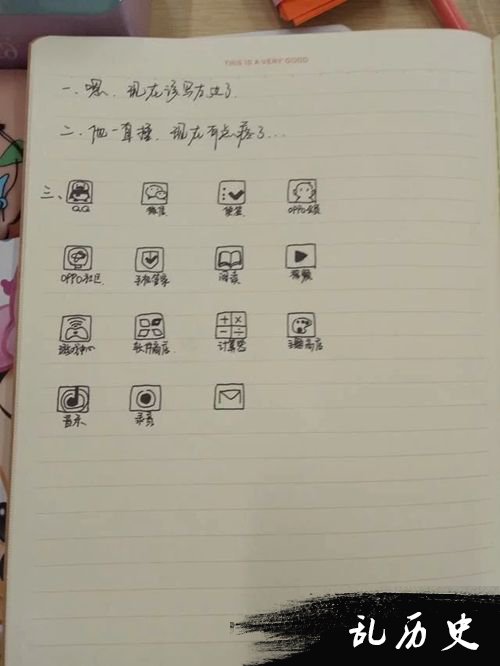 THIS IS A VERY GOOD
一、嗯、现在该写历史了.
二、他一直撞,现在有点疼了...
三、
QQ 微信 便签
OPPO社区 手机管家 阅读 视频
游戏中心 软件商店 计算器 主题商店
音乐 录音
乱历史